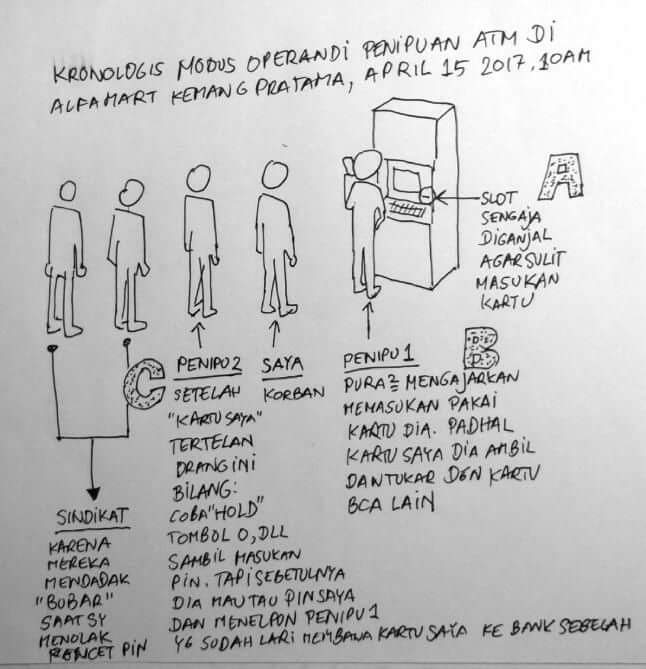 KRONOLOGIS MODUS OPERANDI PENIPUAN ATM DI
ALFAMART KEMANG PRATAMA, APRIL 15 2017. 10AM
A
SLOT
SENGAJA
DIGANJAL
AGAR SULIT
MASUKAN
KARTU
B
PENIPU 1
PURA2 MENGAJARKAN
MEMASUKAN PAKAI
KARTU DIA. PADHAL
KARTU SAYA DIA AMBIL
DAN TUKAR DGN KARTU
BCA LAIN
SAYA
KORBAN
C
PENIPU 2
SETELAH
"KARTU SAYA"
TERTELAN
ORANG INI
BILANG:
COBA "HOLD"
TOMBOL 0, DLL
SAMBIL MASUKAN
PIN. TAPI SEBETULNYA
DIA MAU TAU PIN SAYA
DAN MENELPON PENIPU 1
YG SUDAH LARI MEMBAWA KARTU SAYA KE BANK SEBELAH
SINDIKAT
KARENA
MEREKA
MENDADAK
"BUBAR"
SAAT SY
MENOLAK
PENCET PIN